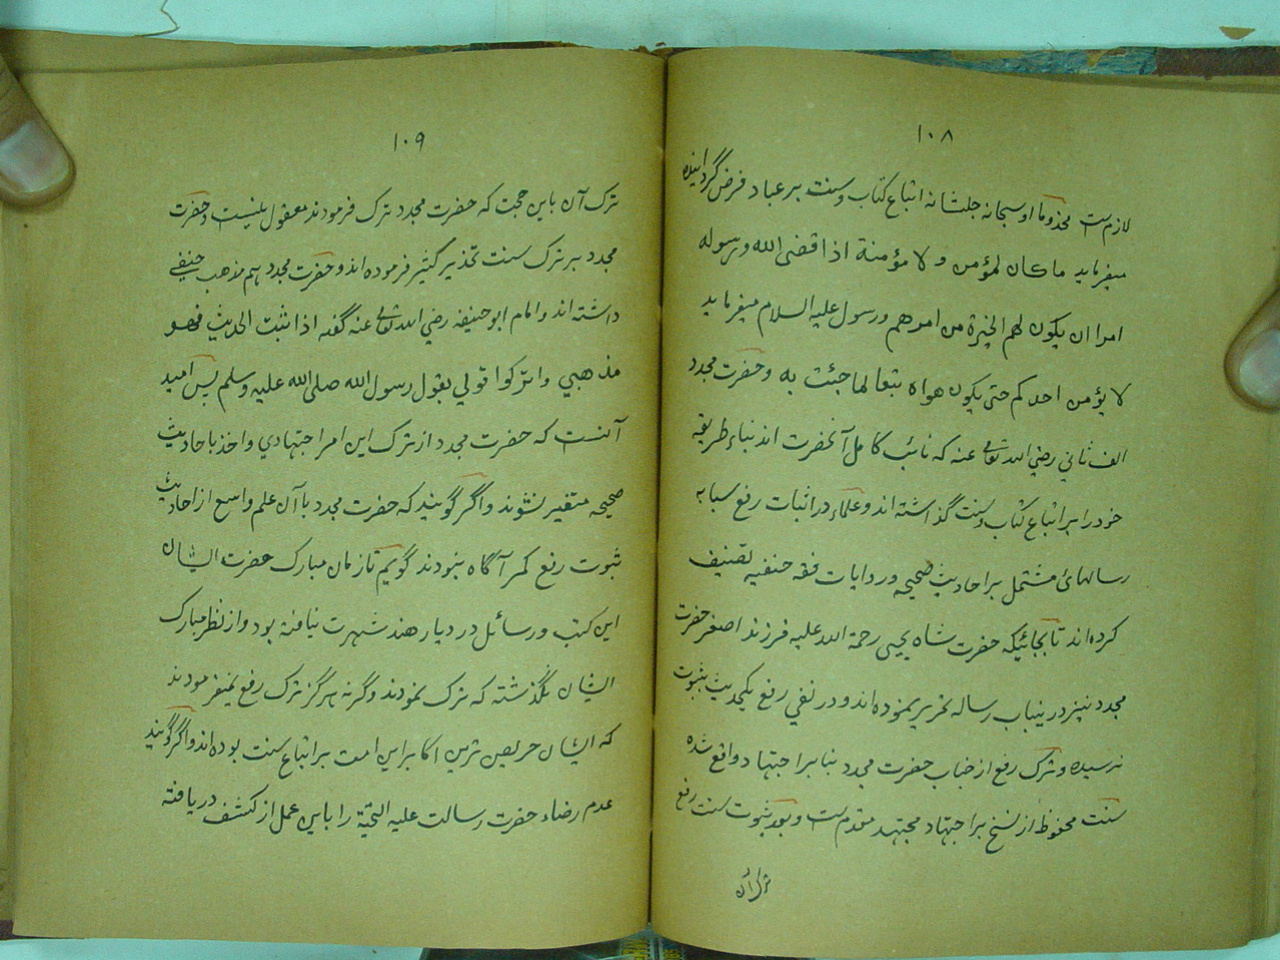 ١٠٨
لازم ست مخدوما او سبحانه جلشانه اتباع كتاب و سنت بر عباد فرض گردانيده
ميفرمايد ما كان لمؤمن و لا مؤمنة اذا قضى الله و رسوله
امرا ان يكون لهم الخيرة من امرهم و رسول عليه السلام ميفرمايد
لا يؤمن احدكم حتى يكون هواه تبعا لما جئت به و حضرت مجدد
الف ثاني رضي الله تعالى عنه كه نائب كامل آنحضرت اند بناء طريقه
خود را بر اتباع كتاب و سنت گذاشته اند و علماء در اثبات رفع سبابه
رسالهائ مشتمل بر احاديث صحيحه و روايات فقه حنفيه تصنيف
كرده اند تا بجائيكه حضرت شاه يحيى رحمة الله عليه فرزند اصغر حضرت
مجدد نيز درينباب رساله تحرير نموده اند و در نفي رفع يكحديث بثبوت
نرسيده و ترك رفع از جناب حضرت مجدد بنا بر اجتهاد واقع شده
سنت محفوظ از نسخ بر اجتهاد مجتهد مقدم ست و بعد ثبوت سنت رفع
ترك آن
١٠٩
ترك آن باين حجت كه حضرت مجدد ترك فرمودند معقول نيست و حضرت
مجدد بر ترك سنت تحذير كثير فرموده اند و حضرت مجدد هم مذهب حنفي
داشته اند و امام ابو حنيفه رضي الله تعالى عنه گفته اذا ثبت الحديث فهو
مذهبي و اتركوا قولي بقول رسول الله صلى الله عليه و سلم پس اميد
آنست كه حضرت مجدد از ترك اين امر اجتهادي و اخذ باحاديث
صحيحه متغير نشوند و اگر گويند كه حضرت مجدد با آن علم واسع از احاديث
ثبوت رفع كمر آگاه نبودند گويم تا زمان مبارك حضرت ايشان
اين كتب و رسائل در ديار هند شهرت نيافته بود و از نظر مبارك
ايشان نگذشته كه ترك نمودند و گرنه هرگز ترك رفع نميفرمودند
كه ايشان حريص ترين اكابر اين امت بر اتباع سنت بوده اند و اگر گويند
عدم رضاء حضرت رسالت عليه التحية را باين عمل از كشف دريافته